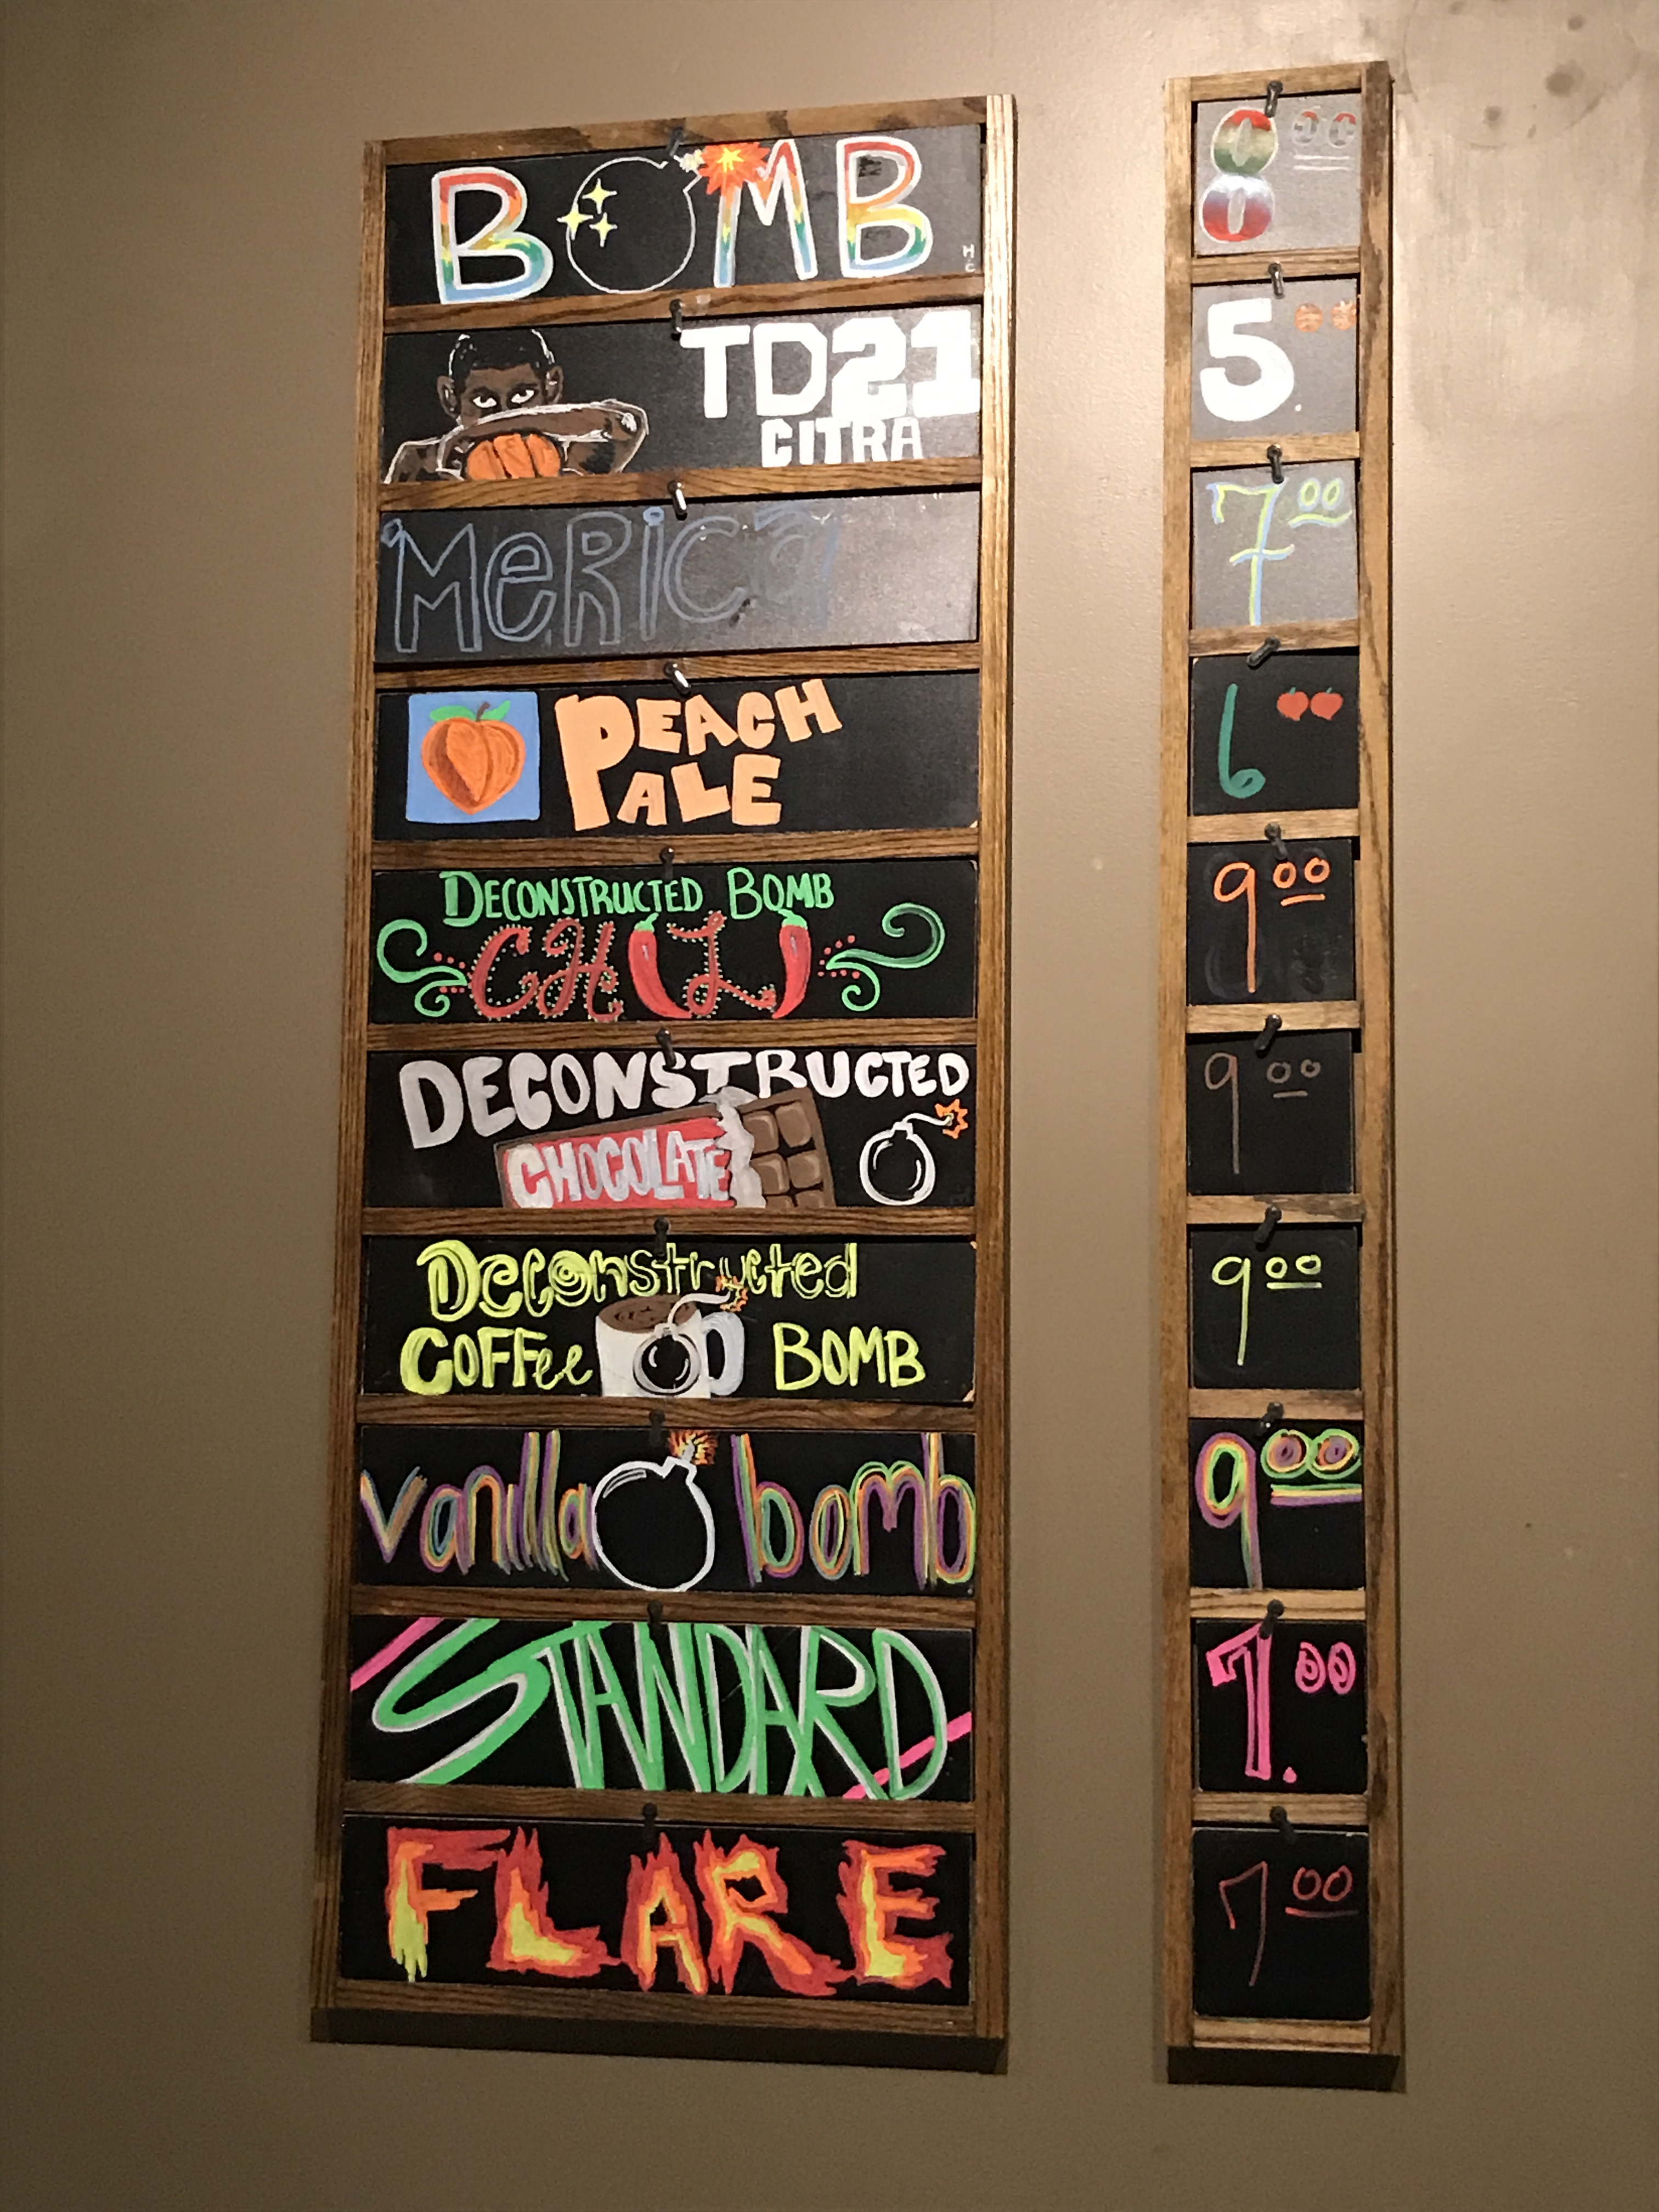 BOMB
HC
8 00
TD21
CITRA
5. 00
'MeRica
7 00
PEACH
PALE
6 00
DECONSTRUCTED BOMB
CHILI
9 00
DECONSTRUCTED
CHOCOLATE
9 00
Deconstructed
COFFee BOMB
9 00
vanilla bomb
9 00
STANDARD
7. 00
FLARE
7 00